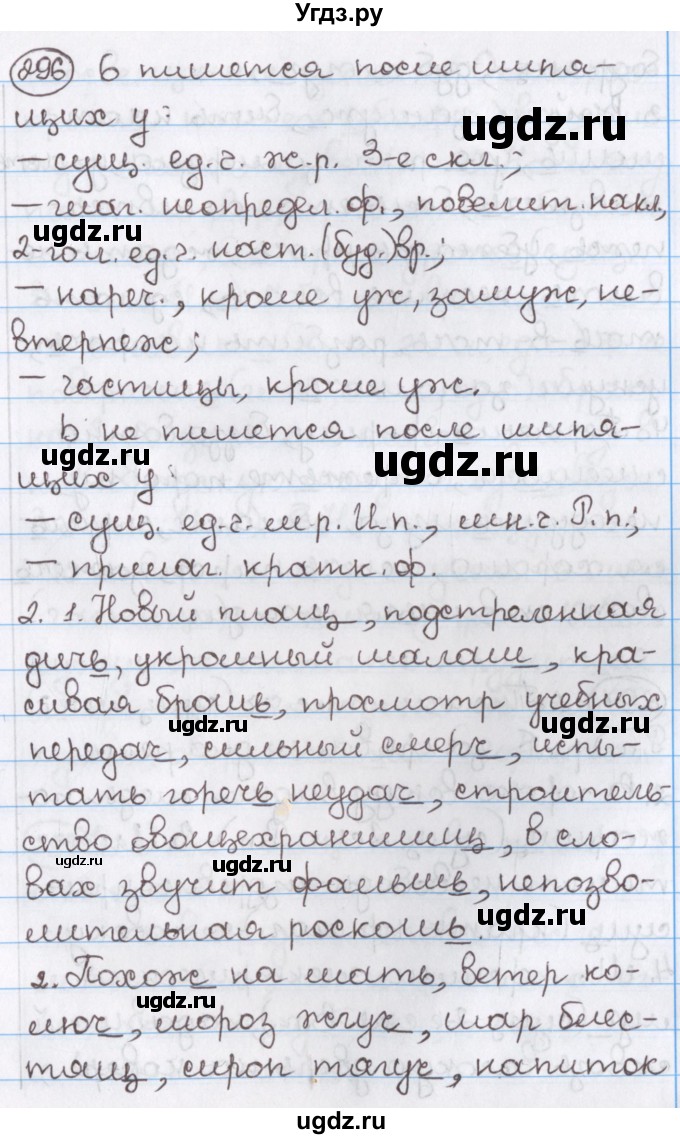 Угдз.ру
296 Ь пишется после шипя-
щих у:
ugdz.ru
– сущ. ед.ч. ж.р. 3-е скл.;
– глаг. неопредел. ф., повелит. накл,
ugdz.ru
2-го л. ед.ч. наст. (буд.) вр.;
– нареч., кроме уж, замуж, не-
втерпеж;
– частицы, кроме уж.
ь не пишется после шипя-
ugdz.ru ugdz.ru
щих у:
– сущ. ед.ч. м.р. И.п., мн.ч. Р.п.;
– прилаг. кратк. ф.
2. 1. Новый плащ, подстреленная
дичь, укромный шалаш, кра-
сивая брошь, просмотр учебных
ugdz.ru ugdz.ru
передач, сильный смерч, испы-
тать горечь неудач, строитель-
ство овощехранилищ, в сло-
ugdz.ru ugdz.ru
вах звучит фальшь, непозво-
лительная роскошь.
ugdz.ru
2. Похож на мать, ветер ко-
ugdz.ru
люч, мороз жгуч, шар блес-
тящ, сироп тягуч, напиток
ugdz.ru